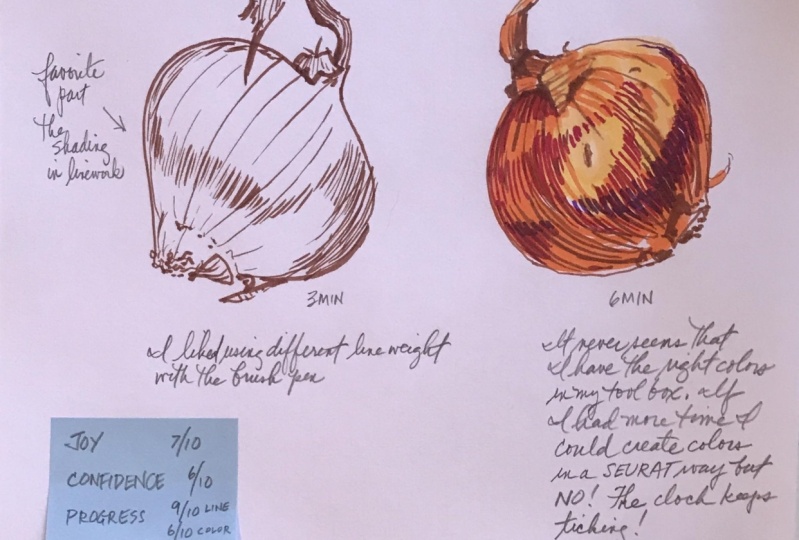 favorite
part
the
shading
in linework
3MIN
6MIN
I liked using different line weight
with the brush pen
It never seems that
I have the right colors
in my tool box. If
I had more time I
could create colors
in a SEURAT way but
NO! The clock keeps
ticking!
JOY 7/10
CONFIDENCE 6/10
PROGRESS 9/10 LINE
6/10 COLOR